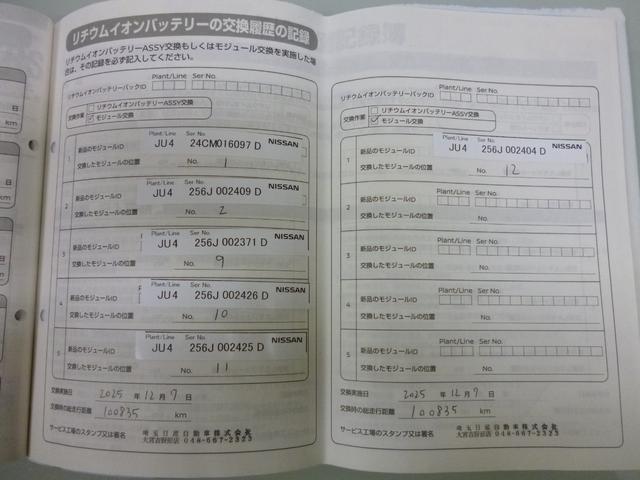 リチウムイオンバッテリーの交換履歴の記録
リチウムイオンバッテリーASSY交換もしくはモジュール交換を実施した場
合は、その記録を必ず記入してください。
Plant/Line Ser No.
リチウムイオンバッテリーパックID
交換作業
リチウムイオンバッテリーASSY交換
モジュール交換
1
Plant/Line Ser No. NISSAN
新品のモジュールID JU4 24CM016097 D
交換したモジュールの位置 No. 1
2
Plant/Line Ser No. NISSAN
新品のモジュールID JU4 256J 002409 D
交換したモジュールの位置 No. 2
3
Plant/Line Ser No. NISSAN
新品のモジュールID JU4 256J 002371 D
交換したモジュールの位置 No. 9
4
Plant/Line Ser No. NISSAN
新品のモジュールID JU4 256J 002426 D
交換したモジュールの位置 No. 10
5
Plant/Line Ser No. NISSAN
新品のモジュールID JU4 256J 002425 D
交換したモジュールの位置 No. 11
交換実施日 2025 年 12 月 7 日
交換時の総走行距離 100835 km
サービス工場のスタンプ又は署名
埼玉日産自動車株式会社
大宮吉野原店 048-667-2323
Plant/Line Ser No.
リチウムイオンバッテリーパックID
交換作業
リチウムイオンバッテリーASSY交換
モジュール交換
1
Plant/Line Ser No. NISSAN
新品のモジュールID JU4 256J 002404 D
交換したモジュールの位置 No. 12
2
Plant/Line Ser No.
新品のモジュールID
交換したモジュールの位置 No.
3
Plant/Line Ser No.
新品のモジュールID
交換したモジュールの位置 No.
4
Plant/Line Ser No.
新品のモジュールID
交換したモジュールの位置 No.
5
Plant/Line Ser No.
新品のモジュールID
交換したモジュールの位置 No.
交換実施日 2025 年 12 月 7 日
交換時の総走行距離 100835 km
サービス工場のスタンプ又は署名
埼玉日産自動車株式会社
大宮吉野原店 048-667-2323
日
km
日
km
日
km